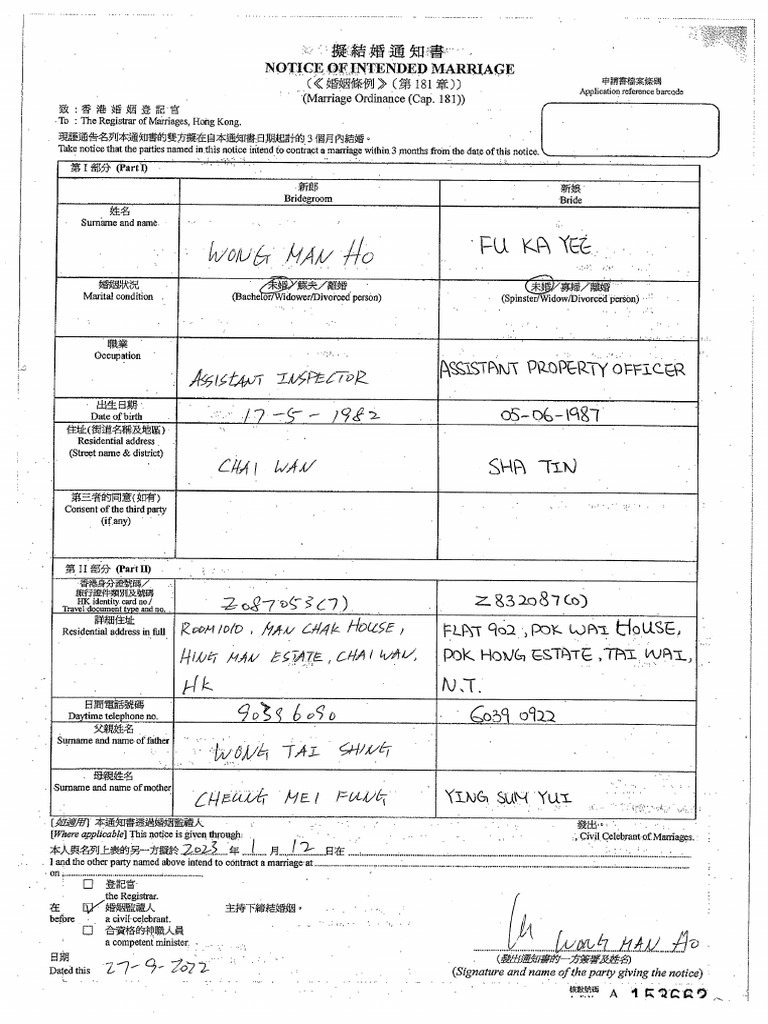 擬結婚通知書
NOTICE OF INTENDED MARRIAGE
(《婚姻條例》(第 181 章))
(Marriage Ordinance (Cap. 181))
申請書檔案條碼
Application reference barcode
致：香港婚姻登記官
To : The Registrar of Marriages, Hong Kong.
現謹通告名列本通知書的雙方擬在自本通知書日期起計的 3 個月內結婚。
Take notice that the parties named in this notice intend to contract a marriage within 3 months from the date of this notice.
第 I 部分 (Part I)
新郎 新娘
Bridegroom Bride
姓名
Surname and name
WONG MAN HO FU KA YEE
婚姻狀況 未婚/鰥夫/離婚 未婚/寡婦/離婚
Marital condition (Bachelor/Widower/Divorced person) (Spinster/Widow/Divorced person)
職業
Occupation
ASSISTANT INSPECTOR ASSISTANT PROPERTY OFFICER
出生日期
Date of birth 17-5-1982 05-06-1987
住址(街道名稱及地區)
Residential address
(Street name & district)
CHAI WAN SHA TIN
第三者的同意(如有)
Consent of the third party
(if any)
第 II 部分 (Part II)
香港身分證號碼/
旅行證件類別及號碼
HK identity card no /
Travel document type and no.
Z087053(7) Z832087(0)
詳細住址
Residential address in full
ROOM 1010, MAN CHAK HOUSE, FLAT 902, POK WAI HOUSE,
HING MAN ESTATE, CHAI WAN, POK HONG ESTATE, TAI WAI,
HK N.T.
日間電話號碼
Daytime telephone no. 90396090 6039 0922
父親姓名
Surname and name of father
WONG TAI SHING
母親姓名
Surname and name of mother
CHEUNG MEI FUNG YING SUM YUI
[如適用] 本通知書透過婚姻監禮人 發出
[Where applicable] This notice is given through , Civil Celebrant of Marriages.
本人與名列上表的另一方擬於 2023 年 1 月 12 日在
I and the other party named above intend to contract a marriage at
on
登記官
the Registrar.
在 婚姻監禮人 主持下締結婚姻。
before a civil celebrant.
合資格的神職人員
a competent minister.
WONG MAN HO
日期 (發出通知書的一方簽署及姓名)
Dated this 27-9-2022 (Signature and name of the party giving the notice)
A 153662